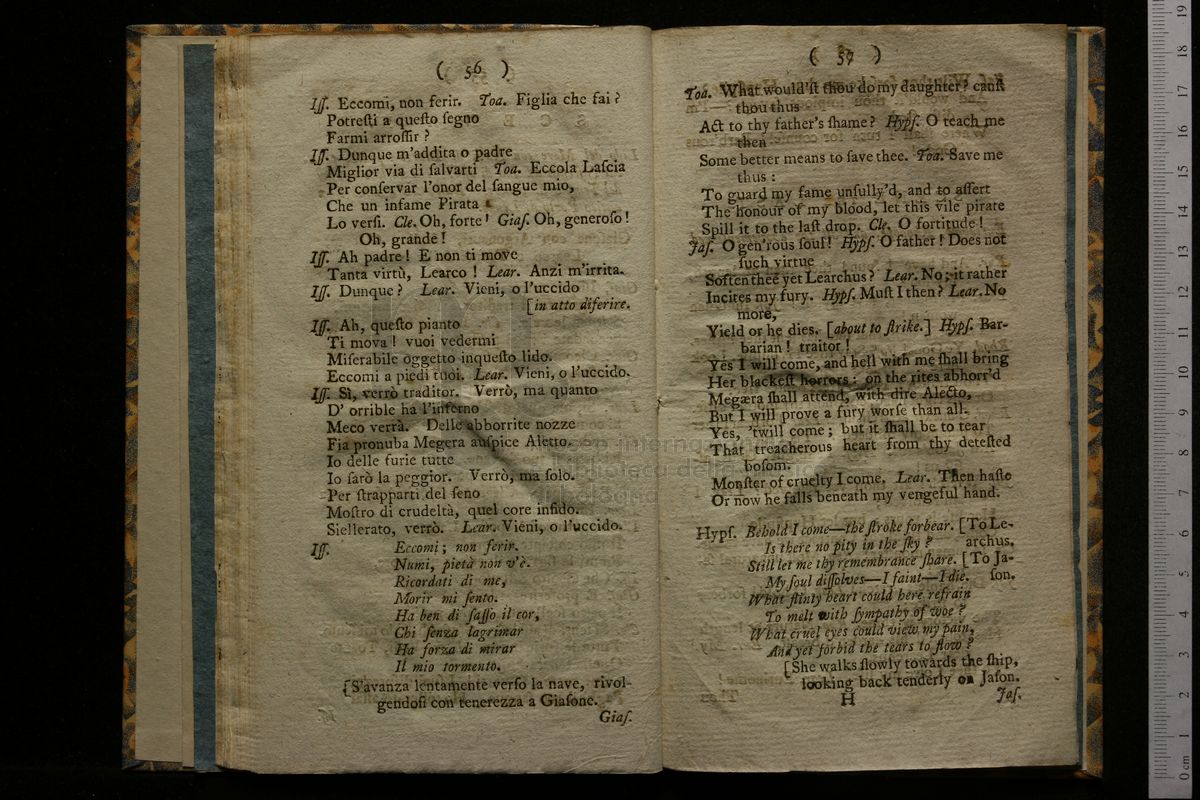 ( 56 )
Iſſ. Eccomi, non ferir. Toa. Figlia che fai?
Potreſti a queſto ſegno
Farmi arroſſir?
Iſſ. Dunque m'addita o padre
Miglior via di ſalvarti Toa. Eccola Laſcia
Per conſervar l'onor del ſangue mio,
Che un infame Pirata
Lo verſi. Cle. Oh, forte! Giaſ. Oh, generoſo!
Oh, grande!
Iſſ. Ah padre! E non ti move
Tanta virtù, Learco! Lear. Anzi m'irrita.
Iſſ. Dunque? Lear. Vieni, o l'uccido
[in atto diferire.
Iſſ. Ah, queſto pianto
Ti mova! vuoi vedermi
Miſerabile oggetto inqueſto lido.
Eccomi a piedi tuoi. Lear. Vieni, o l'uccido.
Iſſ. Sì, verrò traditor. Verrò, ma quanto
D' orrible ha l'inferno
Meco verrà. Delle abborrite nozze
Fia pronuba Megera auſpice Aletto.
Io delle furie tutte
Io ſarò la peggior. Verrò, ma ſolo.
Per ſtrapparti del ſeno
Moſtro di crudeltà, quel core infido.
Siellerato, verrò. Lear. Vieni, o l'uccido.
Iſſ. Eccomi; non ferir.
Numi, pietà non v'è.
Ricordati di me,
Morir mi ſento.
Ha ben di ſaſſo il cor,
Chi ſenza lagrimar
Ha forza di mirar
Il mio tormento.
[S'avanza lentamente verſo la nave, rivol-
gendoſi con tenerezza a Giaſone.
Giaſ.
( 57 )
Toa. What would'ſt thou do my daughter? canſt
thou thus
Act to thy father's ſhame? Hypſ. O teach me
then
Some better means to ſave thee. Toa. Save me
thus:
To guard my fame unſully'd, and to aſſert
The honour of my blood, let this vile pirate
Spill it to the laſt drop. Cle. O fortitude!
Jaſ. O gen'rous ſoul! Hypſ. O father! Does not
ſuch virtue
Soften thee yet Learchus? Lear. No; it rather
Incites my fury. Hypſ. Muſt I then? Lear. No
more,
Yield or he dies. [about to ſtrike.] Hypſ. Bar-
barian! traitor!
Yes I will come, and hell with me ſhall bring
Her blackeſt horrors: on the rites abhorr'd
Megæra ſhall attend, with dire Alecto,
But I will prove a fury worſe than all.
Yes, 'twill come; but it ſhall be to tear
That treacherous heart from thy deteſted
boſom.
Monſter of cruelty I come. Lear. Then haſte
Or now he falls beneath my vengeful hand.
Hypſ. Behold I come—the ſtroke forbear. [To Le-
Is there no pity in the ſky? archus.
Still let me thy remembrance ſhare. [To Ja-
My ſoul diſſolves—I faint—I die. ſon.
What flinty heart could here refrain
To melt with ſympathy of woe?
What cruel eyes could view my pain,
And yet forbid the tears to flow?
[She walks ſlowly towards the ſhip,
looking back tenderly on Jaſon.
H Jaſ.